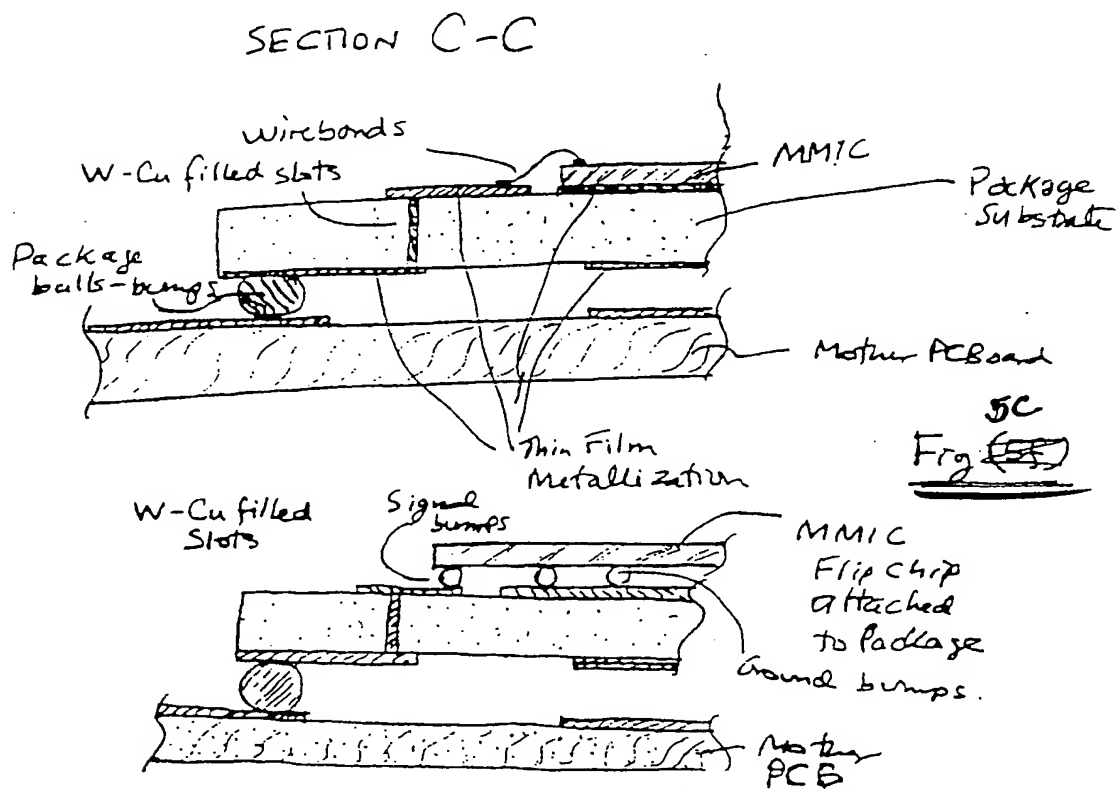 SECTION C-C
Wirebonds
W-Cu filled slots
MMIC
Package
Substrate
Package
balls-bumps
Mother PCBoard
5C
Fig
Thin Film
Metallization
W-Cu filled
Slots
Signal
bumps
MMIC
Flip chip
attached
to Package
Ground bumps.
Mother
PCB